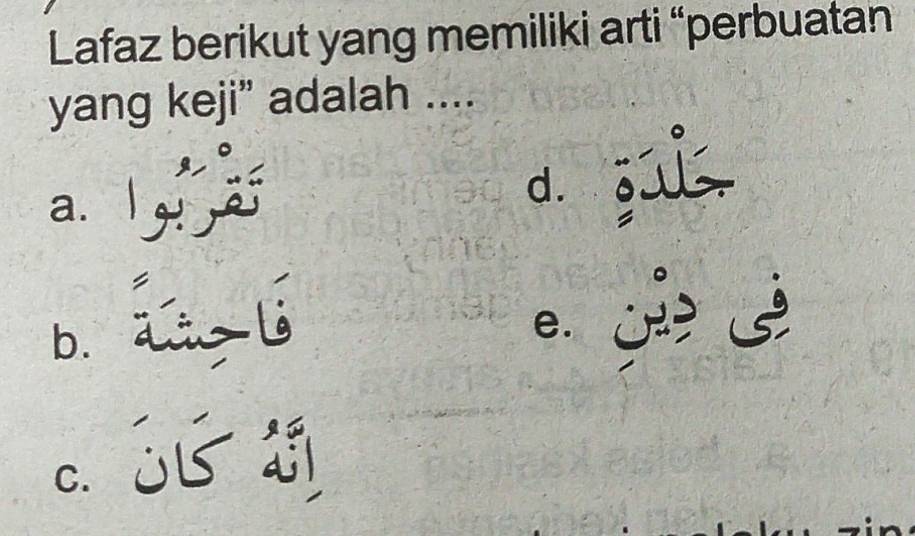 Lafaz berikut yang memiliki arti “perbuatan
yang keji” adalah ....
a. تَقْرَبُوا
b. فَاحِشَةً
c. اِنَّهُ كَانَ
d. جَلْدَةٍ
e. فِى دِيْنِ